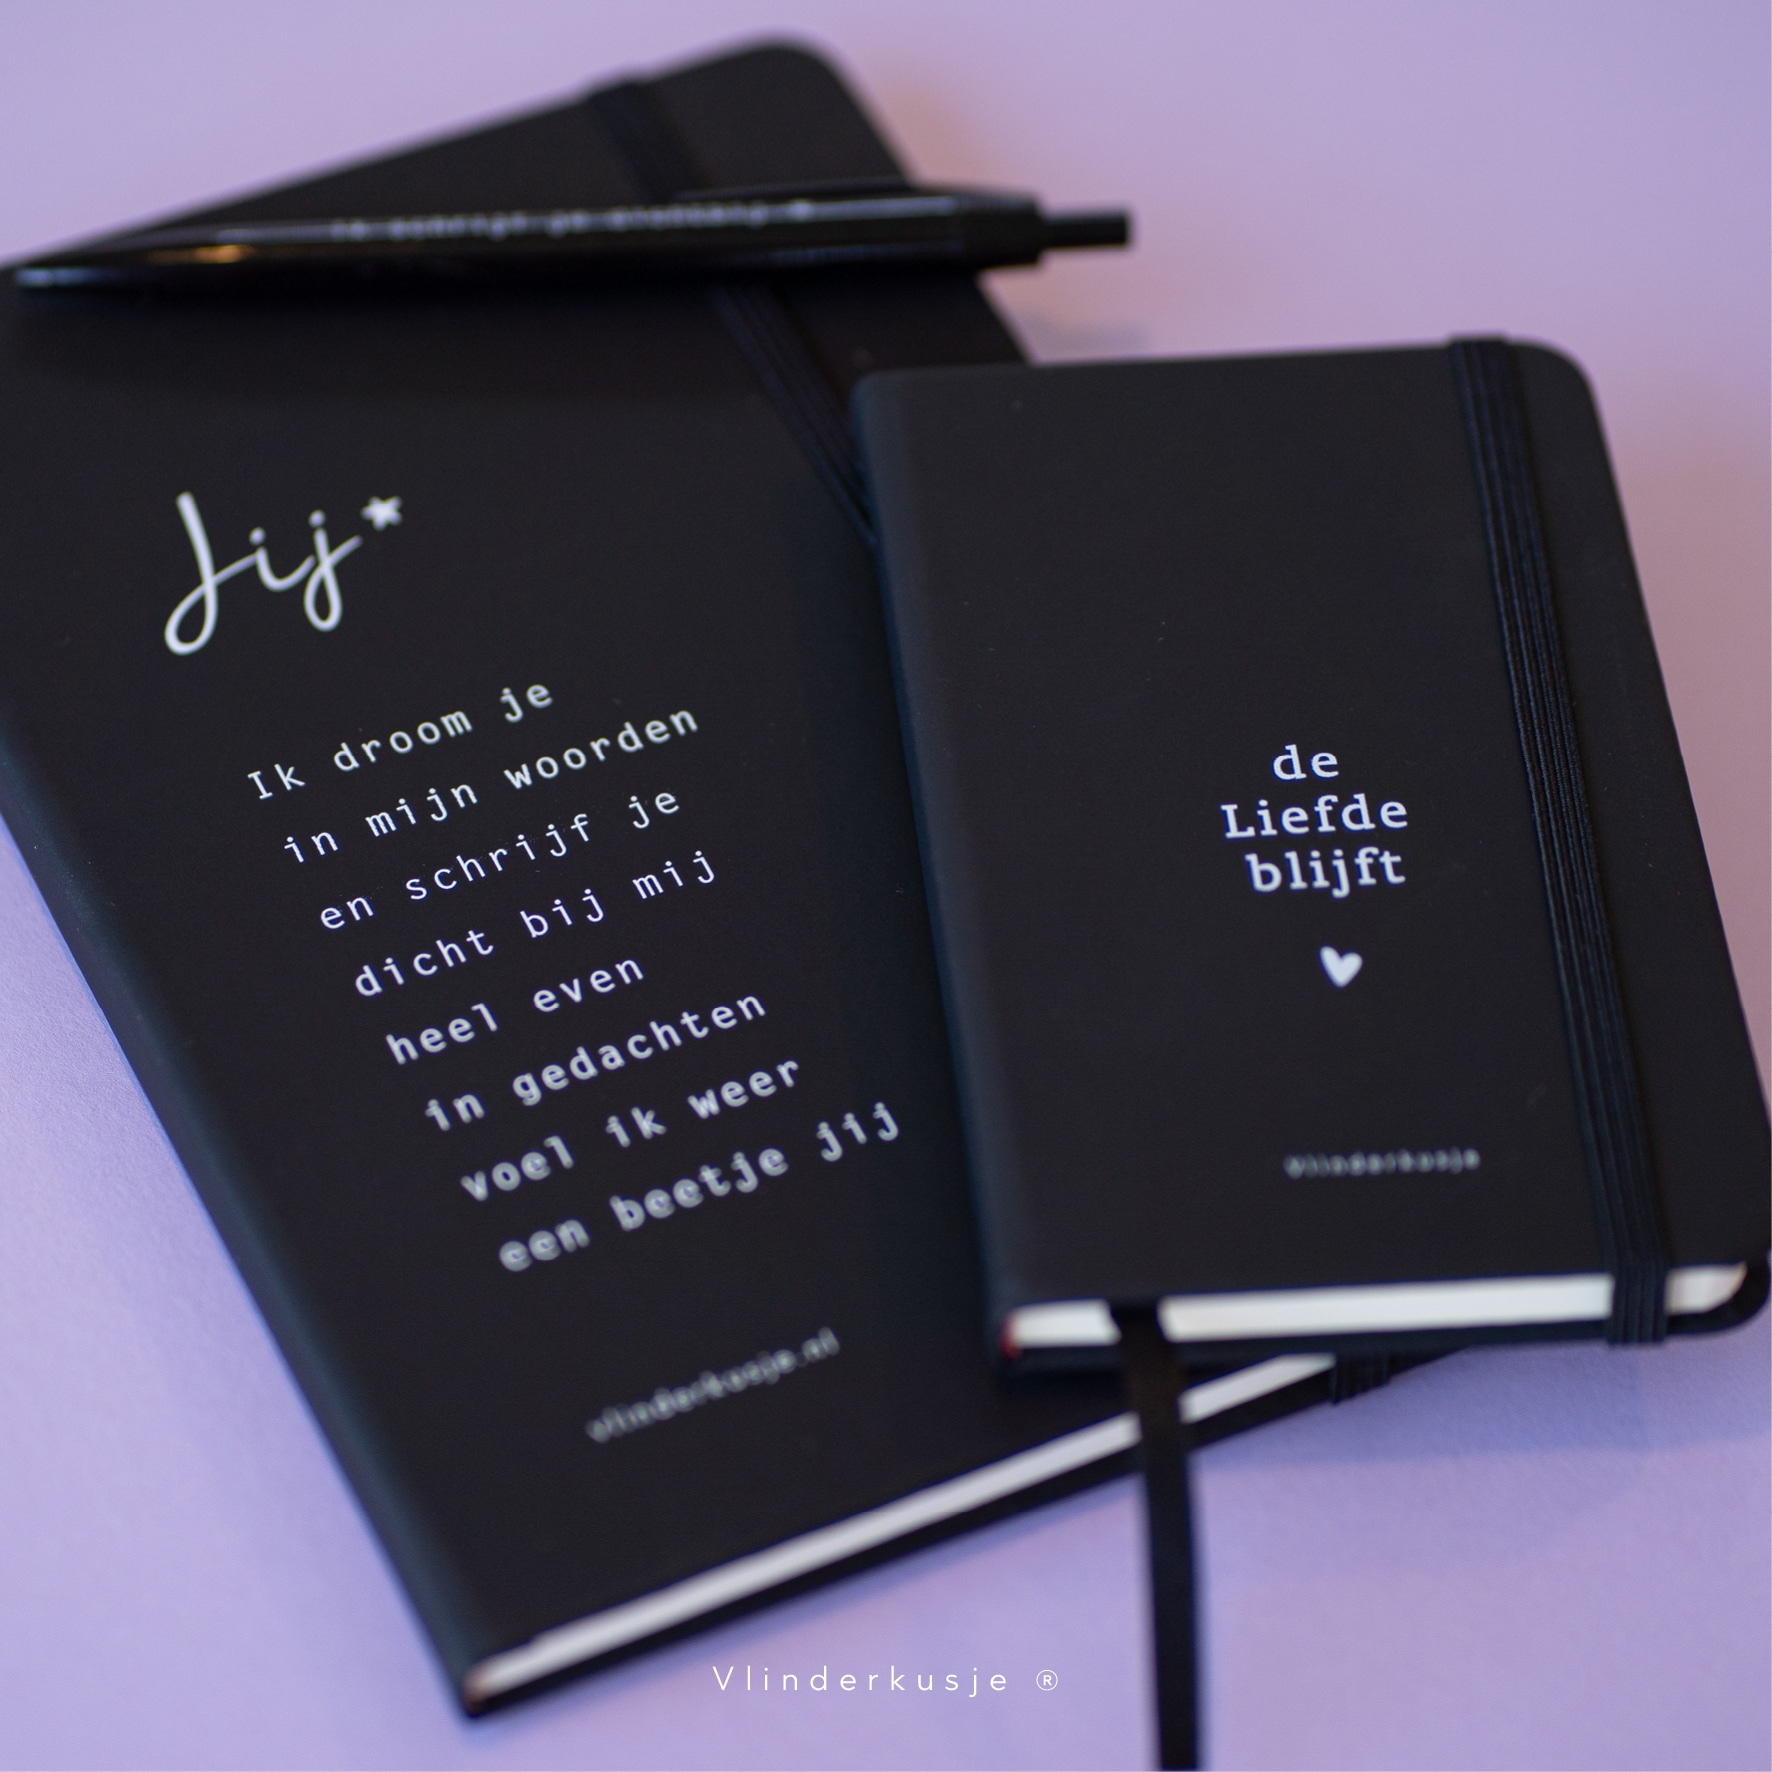 ik schrijf je dichtbij
Jij
Ik droom je
in mijn woorden
en schrijf je
dicht bij mij
heel even
in gedachten
voel ik weer
een beetje jij
vlinderkusje.nl
de
Liefde
blijft
Vlinderkusje
Vlinderkusje ®